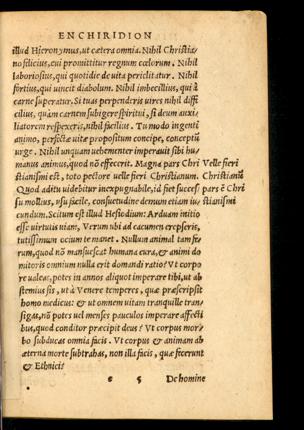 ENCHIRIDION
illud Hieronymus, ut cætera omnia. Nihil Christia/
no fœlicius, cui promittitur regnum cœlorum. Nihil
laboriosius, qui quotidie de uita periclitatur. Nihil
fortius, qui uincit diabolum. Nihil imbecillius, qui à
carne superatur. Si tuas perpenderis uires nihil diffi
cilius, quàm carnem subigere spiritui, si deum auxi
liatorem respexeris, nihil facilius. Tu modo ingenti
animo, perfectæ uitæ propositum concipe, conceptũ
urge. Nihil unquam uehementer imperauit sibi hu
manus animus, quod nõ effecerit. Magna pars Chri Velle fieri
stianismi est, toto pectore uelle fieri Christianum. Christianũ
Quod aditu uidebitur inexpugnabile, id fiet succes pars ẽ Chri
su mollius, usu facile, consuetudine demum etiam iu stianismi
cundum. Scitum est illud Hesiodium: Arduam initio
esse uirtutis uiam, Verum ubi ad cacumen erepseris,
tutissimum ocium te manet. Nullum animal tam fe
rum, quod nõ mansuescat humana cura, & animi do
mitoris omnium nulla erit domandi ratio? Vt corpo
re ualeas, potes in annos aliquot imperare tibi, ut ab
stemius sis, ut à Venere temperes, quæ præscripsit
homo medicus: & ut omnem uitam tranquille tran/
sigas, nõ potes uel menses pauculos imperare affecti
bus, quod conditor præcipit deus? Vt corpus mor/
bo subducas omnia facis. Vt corpus & animam ab
æterna morte subtrahas, non illa facis, quæ fecerunt
& Ethnici?
e 5 De homine